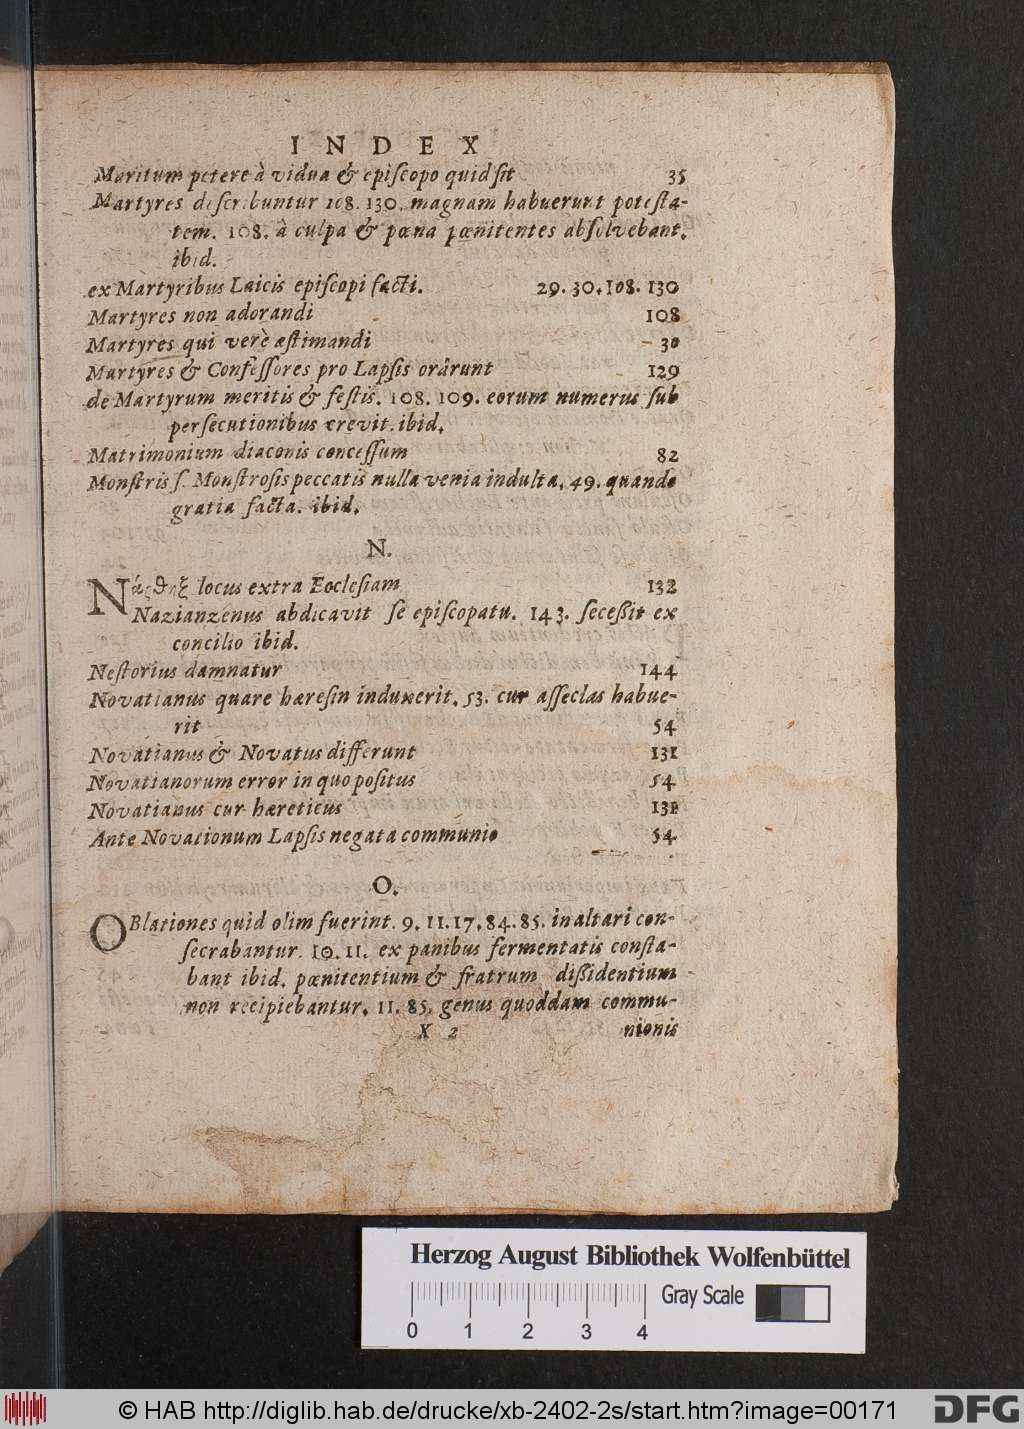 INDEX
Maritum petere à vidua & episcopo quid sit 35
Martyres describuntur 108. 130. magnam habuerunt potesta-
tem. 108. à culpa & pœna pœnitentes absolvebant.
ibid.
ex Martyribus Laicis episcopi facti. 29. 30. 108. 130
Martyres non adorandi 108
Martyres qui verè æstimandi 30
Martyres & Confessores pro Lapsis orârunt 129
de Martyrum meritis & festis. 108. 109. eorum numerus sub
persecutionibus crevit. ibid.
Matrimonium diaconis concessum 82
Monstris s. Monstrosis peccatis nulla venia indulta. 49. quando
gratia facta. ibid.
N.
Νάρθηξ locus extra Ecclesiam 132
Nazianzenus abdicavit se episcopatu. 143. secessit ex
concilio ibid.
Nestorius damnatur 144
Novatianus quare hæresin induxerit. 53. cur asseclas habue-
rit 54
Novatianus & Novatus differunt 131
Novatianorum error in quo positus 54
Novatianus cur hæreticus 131
Ante Novationum Lapsis negata communio 54
O.
OBlationes quid olim fuerint. 9. 11. 17. 84. 85. in altari con-
secrabantur. 10. 11. ex panibus fermentatis consta-
bant ibid. pœnitentium & fratrum dissidentium
non recipiebantur. 11. 85. genus quoddam commu-
X 2 nionis
Herzog August Bibliothek Wolfenbüttel
Gray Scale
0 1 2 3 4
© HAB http://diglib.hab.de/drucke/xb-2402-2s/start.htm?image=00171
DFG